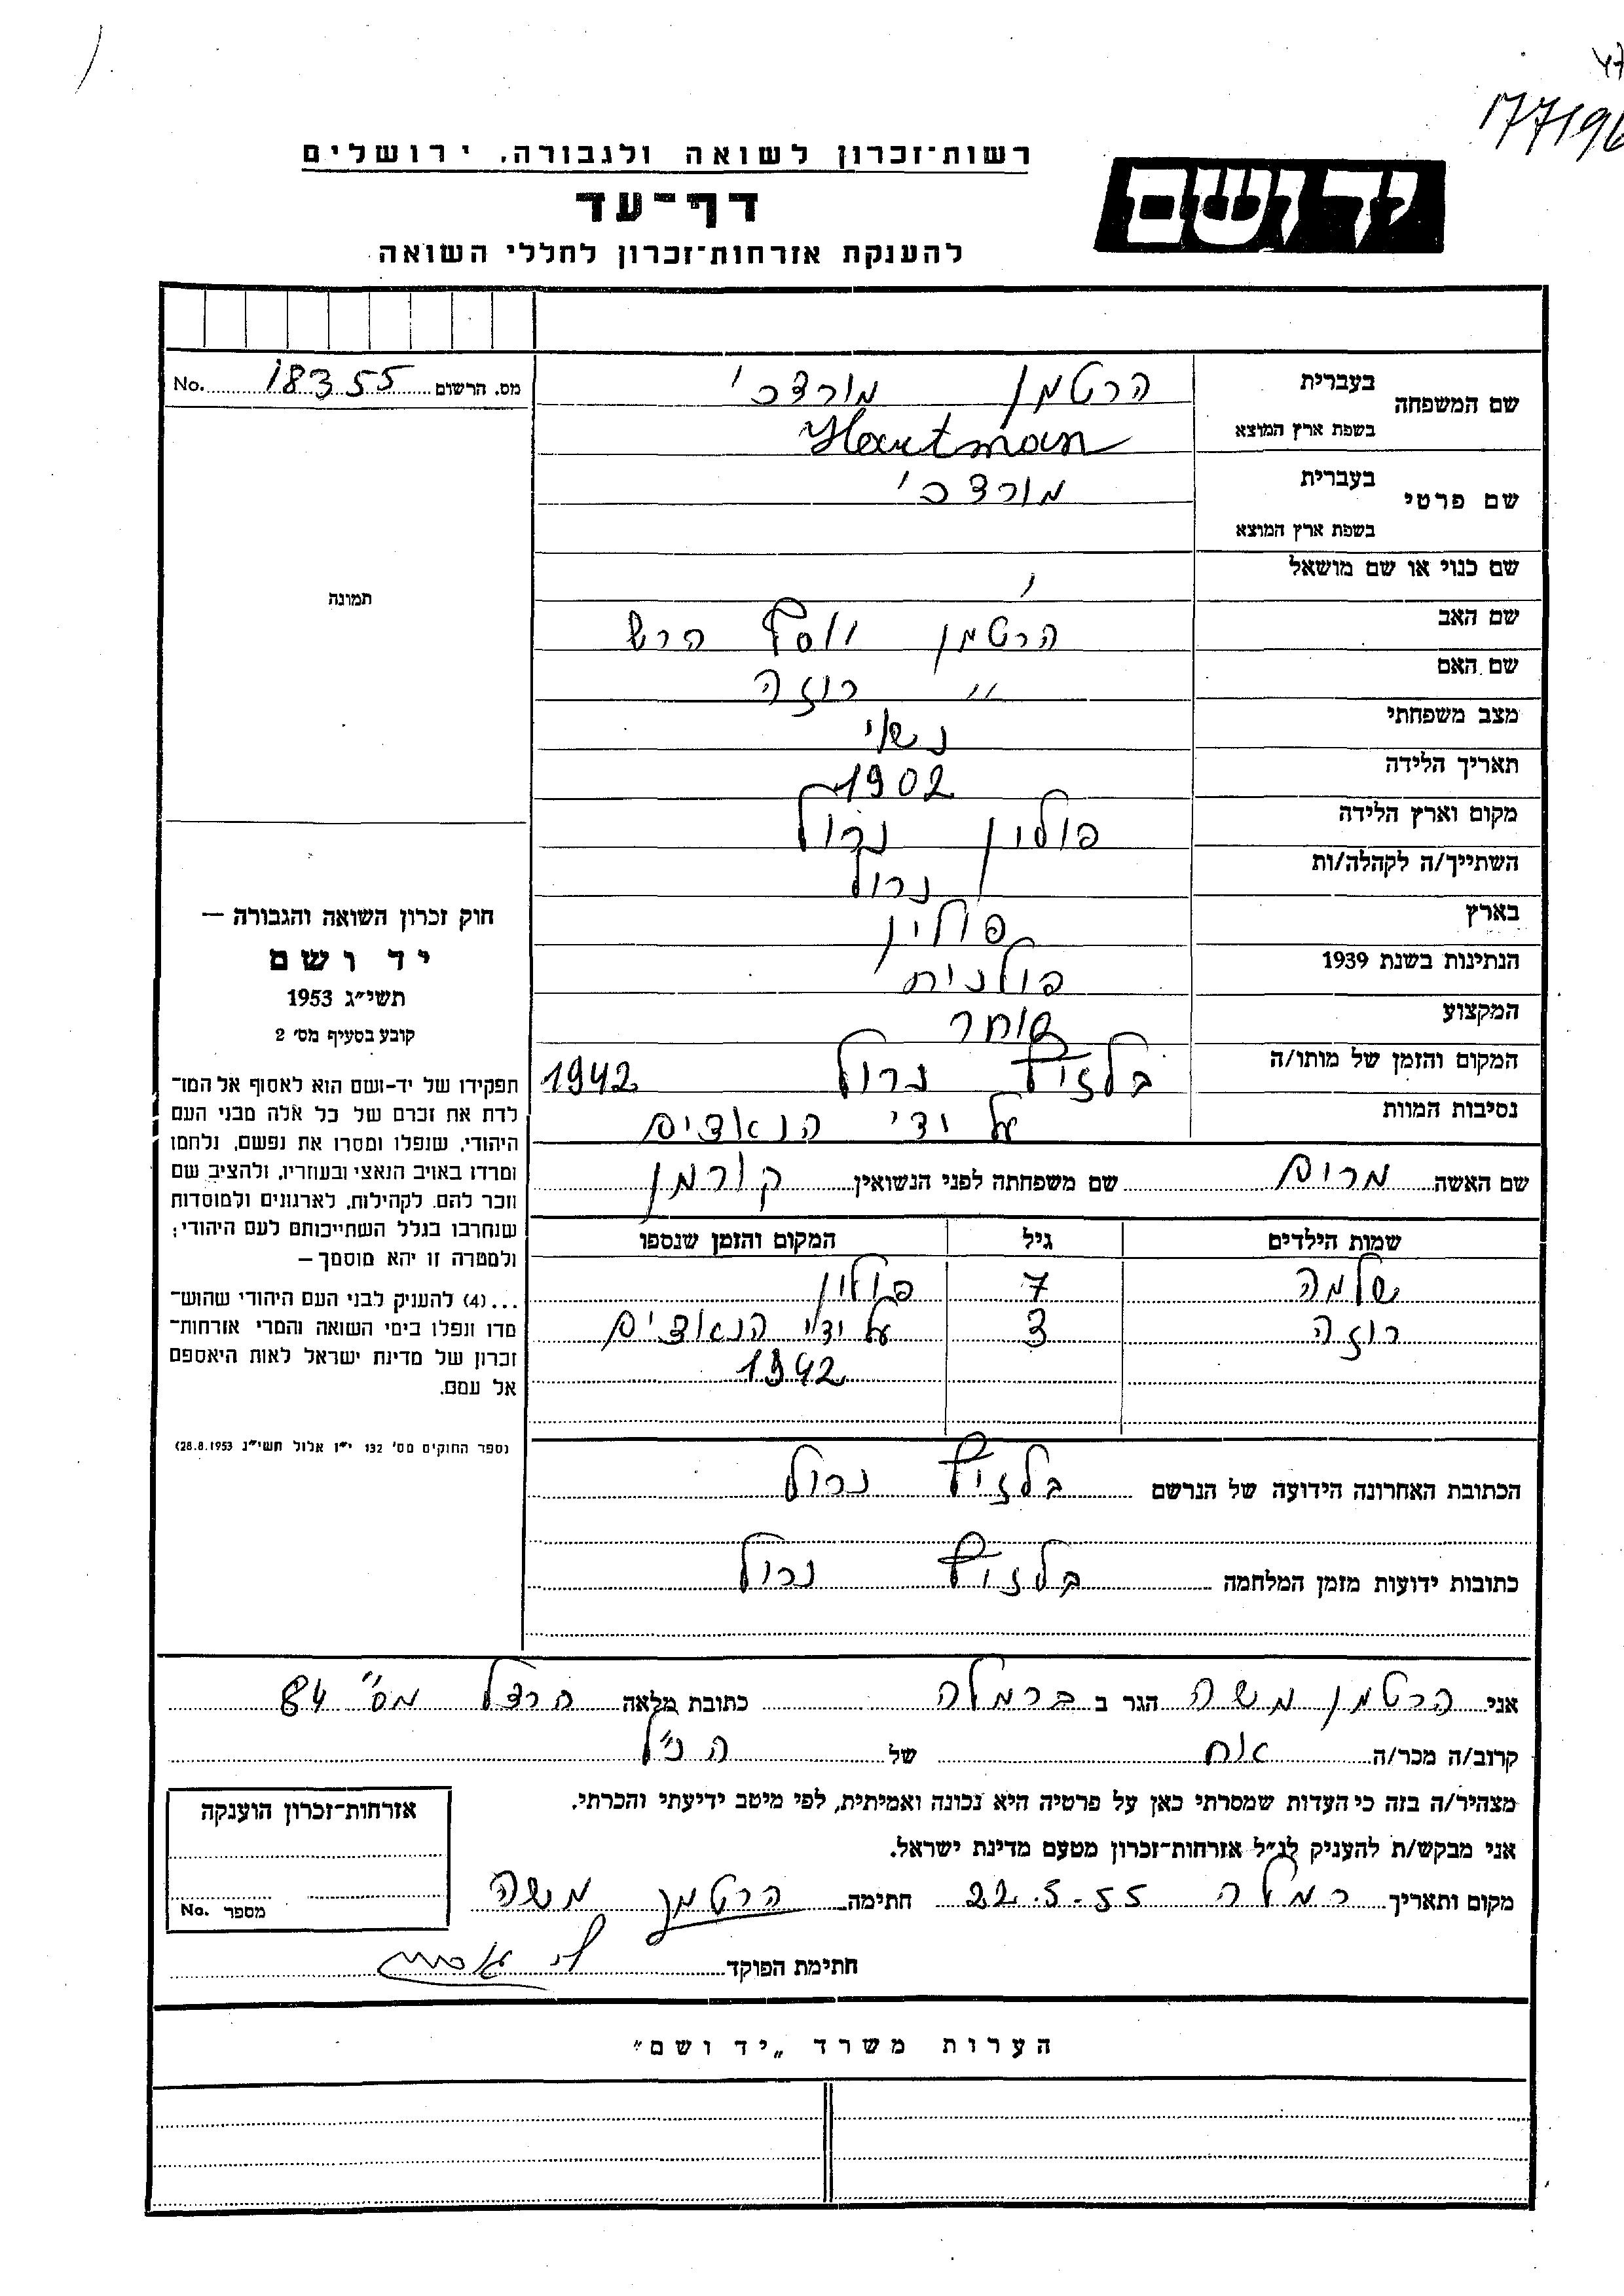 177196
רשות־זכרון לשואה ולגבורה, ירושלים
יד ושם
דף־עד
להענקת אזרחות־זכרון לחללי השואה
מס. הרשום 18355 No.
שם המשפחה
בעברית הרטמן מורדכי
בשפת ארץ המוצא Hartman
שם פרטי
בעברית מורדכי
בשפת ארץ המוצא
שם כנוי או שם מושאל
תמונה
שם האב הרטמן יוסף הרש
שם האם " רוזה
מצב משפחתי נשוי
תאריך הלידה 1902
מקום וארץ הלידה פולין נרול
השתייך/ה לקהלה/ות נרול
בארץ פולין
הנתינות בשנת 1939 פולנית
המקצוע סוחר
המקום והזמן של מותו/ה בלזיץ נרול 1942
נסיבות המוות על ידי הנאצים
שם האשה מרים שם משפחתה לפני הנשואין קורמן
שמות הילדים גיל המקום והזמן שנספו
שלמה 7 פולין
רוזה 3 על ידי הנאצים
1942
חוק זכרון השואה והגבורה —
יד ושם
תשי״ג 1953
קובע בסעיף מס׳ 2
תפקידו של יד-ושם הוא לאסוף אל המו־
לדת את זכרם של כל אלה מבני העם
היהודי, שנפלו ומסרו את נפשם, נלחמו
ומרדו באויב הנאצי ובעוזריו, ולהציב שם
וזכר להם, לקהילות, לארגונים ולמוסדות
שנחרבו בגלל השתייכותם לעם היהודי;
ולמטרה זו יהא מוסמך —
...(4) להעניק לבני העם היהודי שהוש־
מדו ונפלו בימי השואה והמרי אזרחות־
זכרון של מדינת ישראל לאות היאספם
אל עמם.
(ספר החוקים מס׳ 132 י״ז אלול תשי״ג 28.8.1953)
הכתובת האחרונה הידועה של הנרשם בלזיץ נרול
כתובות ידועות מזמן המלחמה בלזיץ נרול
אני הרטמן משה הגר ב ברמלה כתובת מלאה הרצל מס" 84
קרוב/ה מכר/ה אח של הנ״ל
מצהיר/ה בזה כי העדות שמסרתי כאן על פרטיה היא נכונה ואמיתית, לפי מיטב ידיעתי והכרתי.
אני מבקש/ת להעניק לנ״ל אזרחות־זכרון מטעם מדינת ישראל.
מקום ותאריך רמלה 22.5.55 חתימה הרטמן משה
חתימת הפוקד
אזרחות־זכרון הוענקה
מספר No.
הערות משרד „יד ושם״